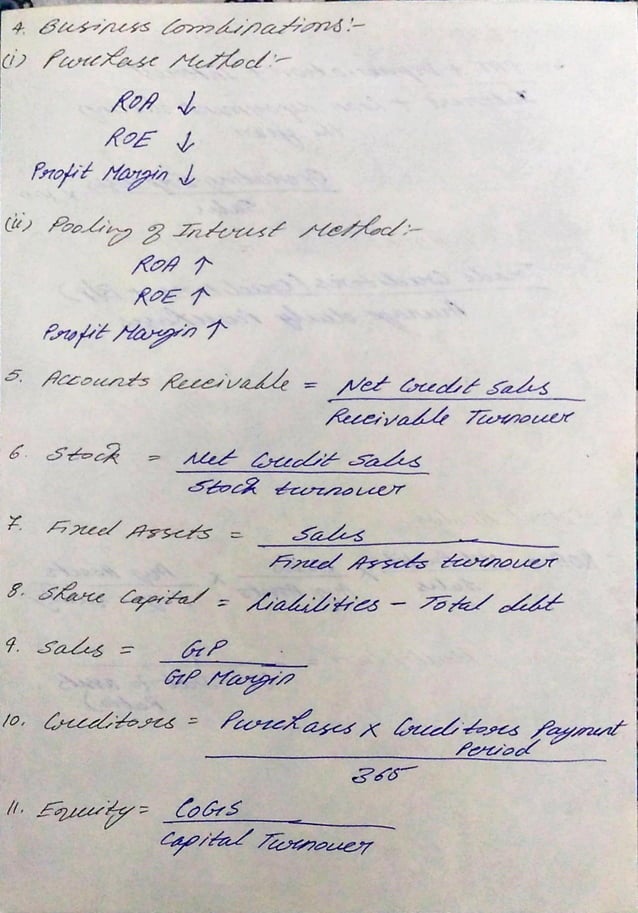 4. Business Combinations:-
(i) Purchase Method:-
ROA ↓
ROE ↓
Profit Margin ↓
(ii) Pooling of Interest Method:-
ROA ↑
ROE ↑
Profit Margin ↑
5. Accounts Receivable = Net Credit Sales
Receivable Turnover
6. Stock = Net Credit Sales
Stock turnover
7. Fixed Assets = Sales
Fixed Assets turnover
8. Share Capital = Liabilities - Total debt
9. Sales = GP
GP Margin
10. Creditors = Purchases x Creditors Payment
Period
365
11. Equity = COGS
Capital Turnover